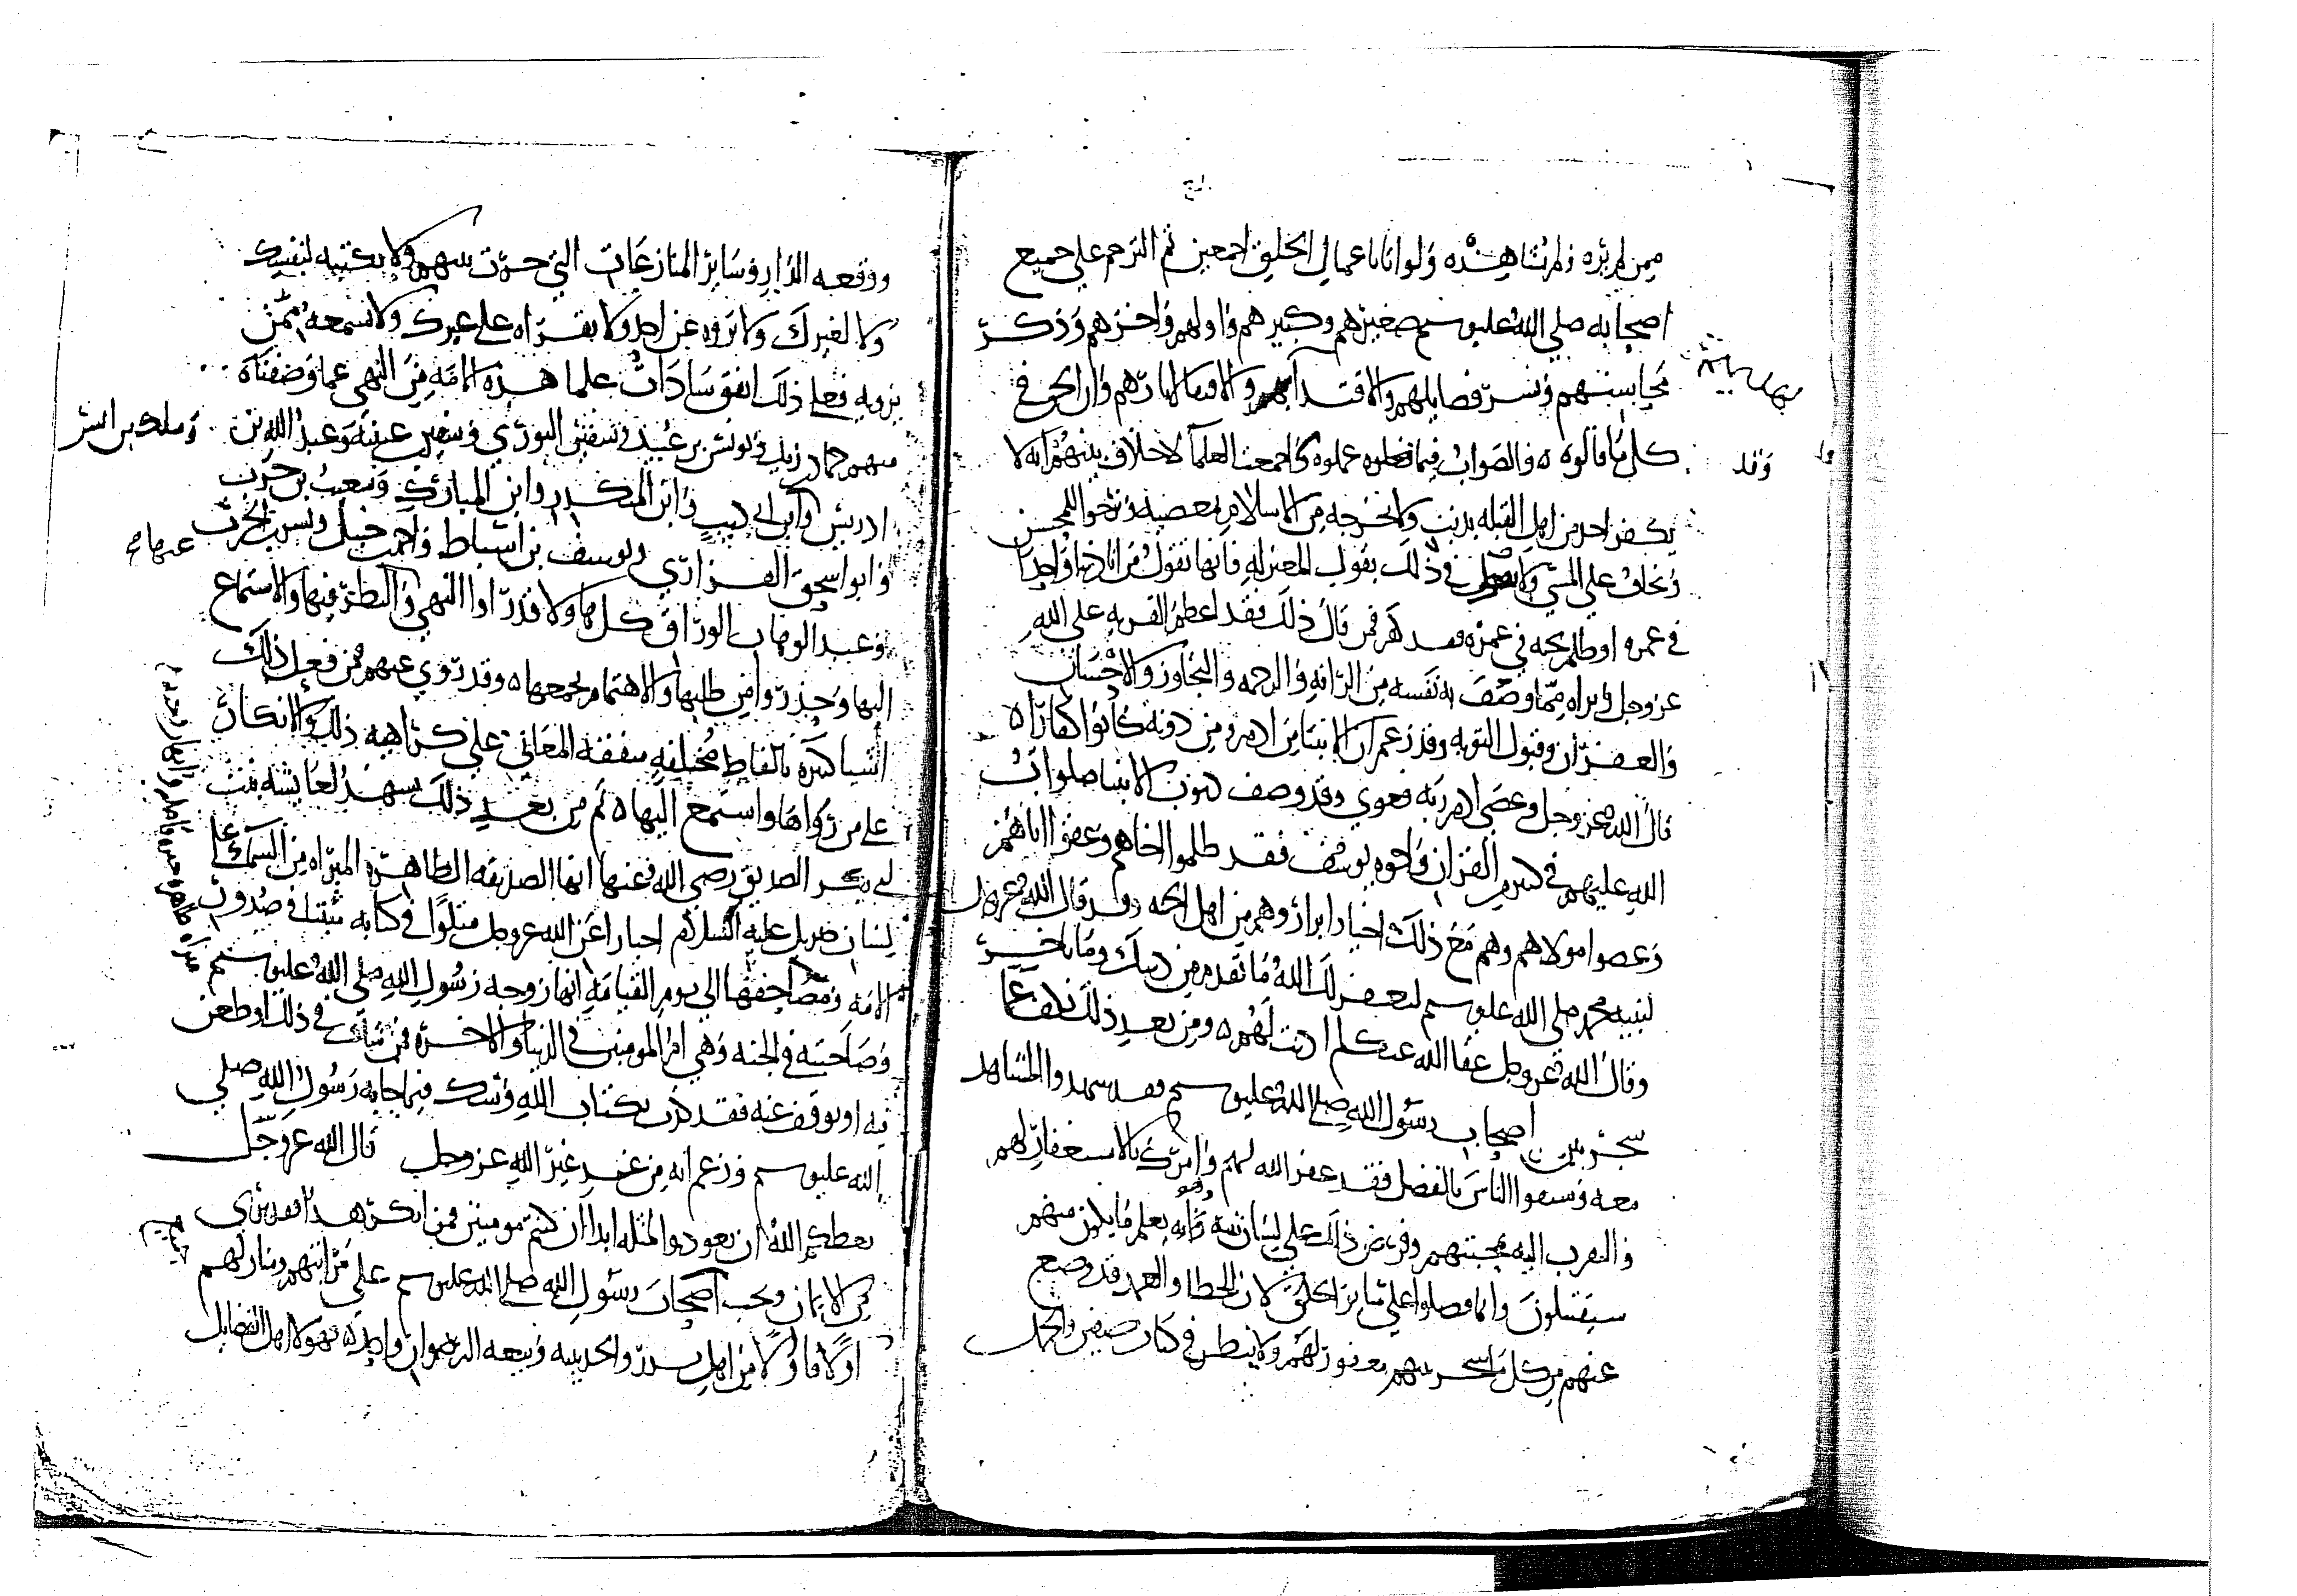 ممن لم يره ولم يشاهده ولو اتا باعمال الخلق اجمعين ثم الترحم على جميع
اصحابه صلى الله عليه وسلم صغيرهم وكبيرهم واولهم واخرهم وذكر
محاسنهم ونشر فضايلهم والاقتدا بهديهم والاقتفا لاثارهم وان الحق في
كل ما قالوه والصواب فيما فعلوه عملوه واجمعت العلما لا خلاف بينهم انه لا
وقد
يكفر احد من اهل القبله بذنب ولا نخرجه من الاسلام بمعصيه ونرجوا للمحسن
ونخاف على المسي ولا نقول في ذلك بقول المعتزله فانها تقول من اتا ذنبا واحدا
في عمره او ظلم بحبه في عمره فقد كفر فمن قال ذلك فقد اعظم الفريه على الله
عز وجل وابراه مما وصف به نفسه من الرافه والرحمه والتجاوز والاحسان
والغفران وقبول التوبه وقد زعم ان الانبيا من ادم ومن دونه كانوا كفارا
قال الله عز وجل وعصى ادم ربه فغوى وقد وصف ذنوب الانبيا صلوات
الله عليهم في كثير من القران واخوه يوسف فقد ظلموا اخاهم وعقوا اباهم
وعصوا مولاهم وهم مع ذلك اخيار ابرار وهم من اهل الجنه وقد قال الله عز وجل
لنبيه محمد صلى الله عليه وسلم ليغفر لك الله ما تقدم من ذنبك وما تاخر
وقال الله عز وجل عفا الله عنك لم اذنت لهم ومن بعد ذلك نكف عما
شجر بين اصحاب رسول الله صلى الله عليه وسلم فقد شهدوا المشاهد
معه وسبقوا الناس بالفضل فقد غفر الله لهم وامرك بالاستغفار لهم
والتقرب اليه بمحبتهم وفرض ذلك على لسان نبيه وهو يعلم ما يكون منهم
سيقتتلون وانما فضلوا على ساير الخلق لان الخطا والعمد قد وضع
عنهم وكل ما شجر بينهم مغفور لهم ولا ينظر في كتاب صفين والجمل
ووقعه الدار وساير المنازعات التي جرت بينهم ولا تكتبه لنفسك
ولا لغيرك ولا تروه عن احد ولا تقراه على غيرك ولا تسمعه ممن
يرويه فعلى ذلك اتفق سادات علما هذه الامه من النهي عما وصفناه
منهم حماد بن زيد ويونس بن عبيد وسفين الثوري وسفين بن عيينه وعبد الله بن
ومالك بن انس
ادريس وابن ابي ذيب وابن المنكدر وابن المبارك وشعيب بن حرب
وابو اسحق الفزاري ويوسف بن اسباط واحمد بن حنبل وبشر بن الحرث
وعبد الوهاب الوراق كل هاولا قد راوا النهي والنظر فيها والاستماع
اليها وحذروا من طلبها والاهتمام بجمعها وقد روي عنهم فمن فعل ذلك
اشيا كثيره بالفاظ مختلفه متفقه المعاني على كراهيه ذلك والانكار
على من رواها واستمع اليها ثم من بعد ذلك يشهد لعايشه بنت
ابي بكر الصديق رضي الله عنها انها الصديقه الطاهره المبراه من السما على
لسان جبريل عليه السلام اخبارا عن الله عز وجل متلوا في كتابه مثبتا في صدور
الامه ومصاحفها الى يوم القيامه انها زوجه رسول الله صلى الله عليه وسلم
وصاحبته في الجنه وهي ام المومنين في الدنيا والاخره فمن شك في ذلك او طعن
فيه او توقف عنه فقد كذب بكتاب الله وشك فيما جا به رسول الله صلى
الله عليه وسلم وزعم انه من عند غير الله عز وجل قال الله عز وجل
يعظكم الله ان تعودوا لمثله ابدا ان كنتم مومنين فمن انكر هذا فقد بري
من الايمان ويحب اصحاب رسول الله صلى الله عليه وسلم على مراتبهم ومنازلهم
اولا فاولا من اهل بدر والحديبيه وبيعه الرضوان واحد فهولا اهل الفضايل